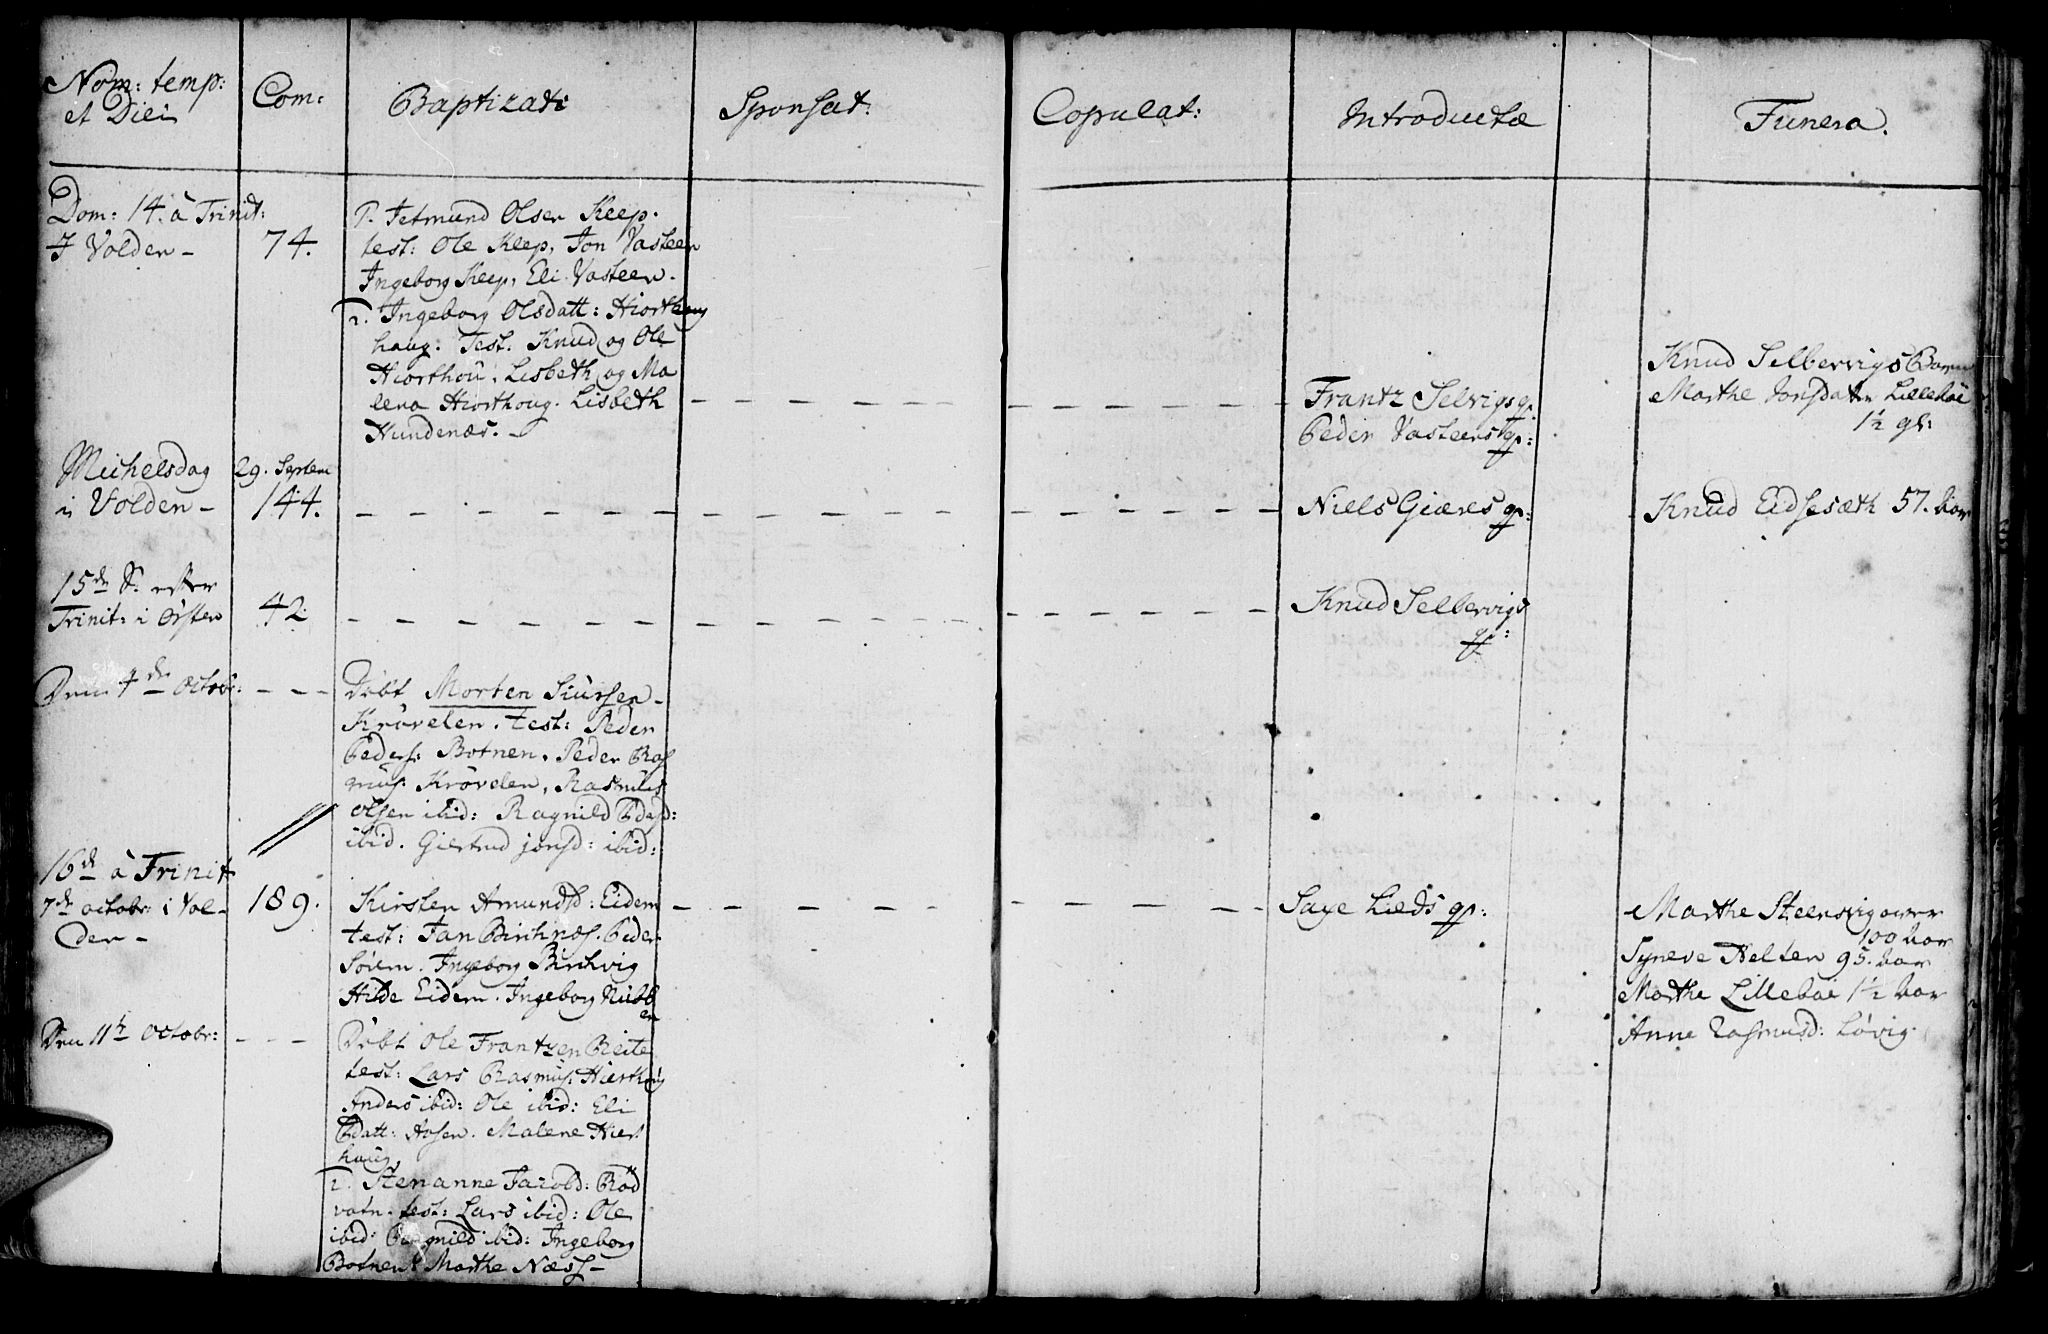 Nom: temp: et Diei
Com:
Baptizati
Sponsat:
Copulat:
Introductæ
Funera.
Dom: 14. à Trinit:
I Volden -
74.
1. Jetmund Olsen Kleep.
test: Ole Kleep, Jon Vasteen
Ingeborg Kleep, Eli Vasteen.
2. Ingeborg Olsdatt: Hiorthoug
haug: Test. Knud og Ole
Hiorthou, Lisbeth og Ma
lena Hiorthoug. Lisbeth
Hundenæs. -
Frantz Selvigs qv:
Peder Vasteens qv:
Knud Selbervigs Barn
Marthe Jonsdatr Lillebøe
1½ gl:
Michelsdag
i Volden -
29. Septem
144.
Niels Giæres qv:
Knud Eidsesæth 57. Aar
15de S: efter
Trinit: i Ørsten
42
Knud Selbervigs
qv:
Den 4de Octobr:
Døbt Morten Siursen -
Krøvelen. test: Peder
Peders: Botnen, Peder Ras
mus: Krøvelen, Rasmus
Olsen ibid: Ragnild Pdsd:
ibid. Giertrud Jonsd: ibid:
16de à Trinit
7de octobr: i Vol-
den -
189.
Kirsten Amundsd: Eidem
test: Jan Birchnæs. Peder
Søiem. Ingeborg Birchvig
Hilde Eidem. Ingeborg Nubb
en
Saye Lieds qv:
Marthe Steensvig over
100 Aar
Syneve Helten 95. Aar
Marthe Lillebøe 1½ Aar
Anne Rasmusd: Løvig
Den 11te Octobr:
Døbt Ole Frantzen Reite
test: Lars Rasmus: Hierthoug
Anders ibid: Ole ibid: Eli
Pdatt: Aasen. Malene Hiert
haug,
2. Stenanne Jacobd: Rød
vatn. test: Lars ibid: Ole
ibid: Ragnild ibid: Ingeborg
Botnen Marthe Næss -